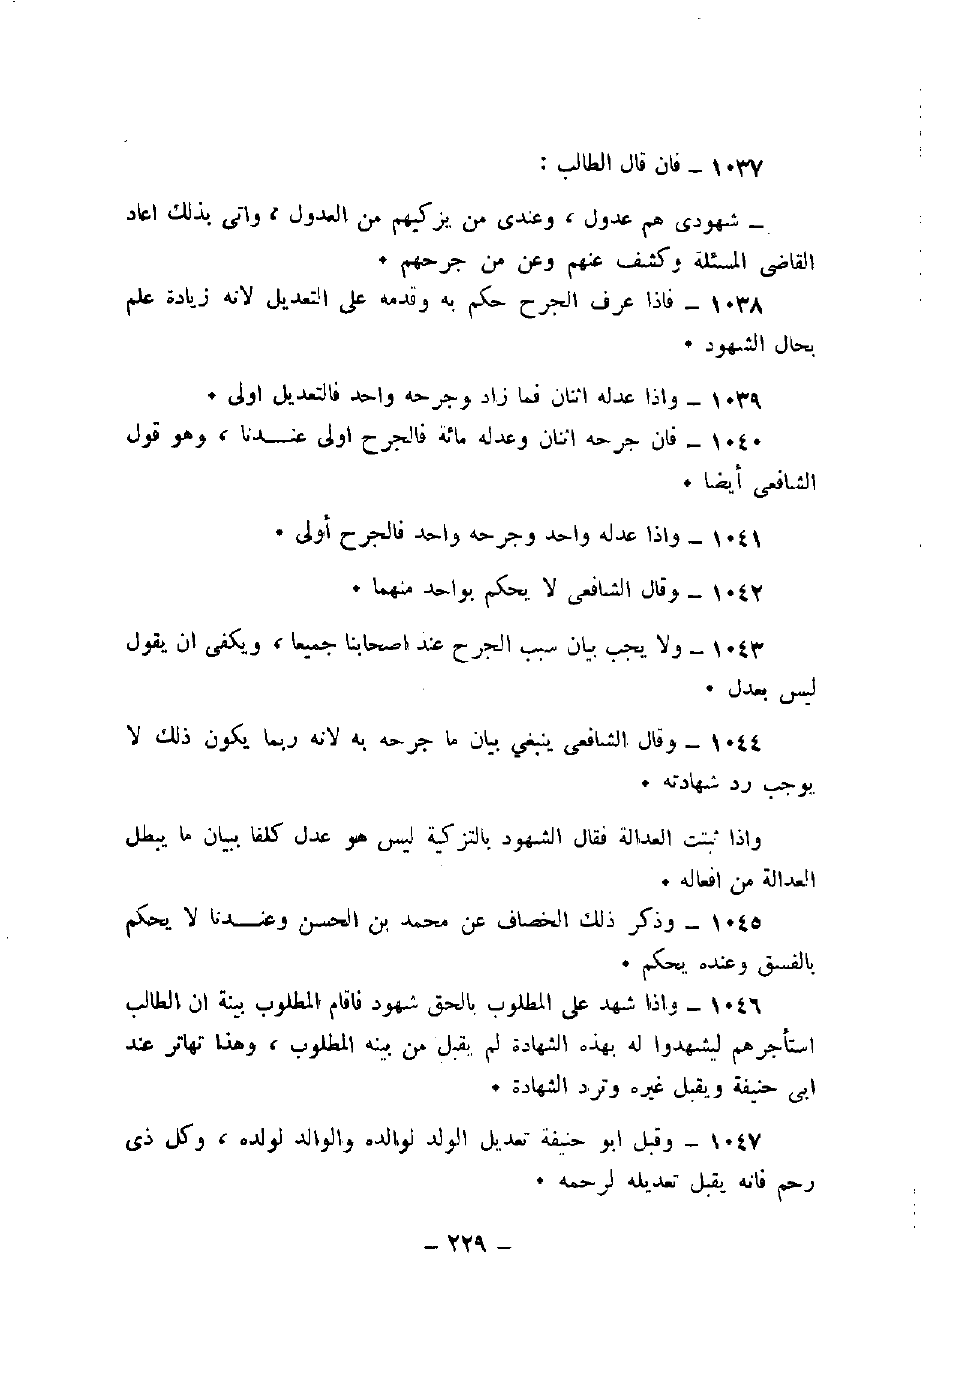 ١٠٣٧ ــ فان قال الطالب :
ــ شهودى هم عدول ، وعندى من يزكيهم من العدول ، واتى بذلك اعاد
القاضى المسئلة وكشف عنهم وعن من جرحهم ٠
١٠٣٨ ــ فاذا عرف الجرح حكم به وقدمه على التعديل لانه زيادة علم
بحال الشهود ٠
١٠٣٩ ــ واذا عدله اثنان فما زاد وجرحه واحد فالتعديل اولى ٠
١٠٤٠ ــ فان جرحه اثنان وعدله مائة فالجرح اولى عنــدنا ، وهو قول
الشافعى أيضا ٠
١٠٤١ ــ واذا عدله واحد وجرحه واحد فالجرح أولى ٠
١٠٤٢ ــ وقال الشافعى لا يحكم بواحد منهما ٠
١٠٤٣ ــ ولا يجب بيان سبب الجرح عند اصحابنا جميعا ، ويكفى ان يقول
ليس بعدل ٠
١٠٤٤ ــ وقال الشافعى ينبغي بيان ما جرحه به لانه ربما يكون ذلك لا
يوجب رد شهادته ٠
واذا ثبتت العدالة فقال الشهود بالتزكية ليس هو عدل كلفا ببيان ما يبطل
العدالة من افعاله ٠
١٠٤٥ ــ وذكر ذلك الخصاف عن محمد بن الحسن وعنــدنا لا يحكم
بالفسق وعنده يحكم ٠
١٠٤٦ ــ واذا شهد على المطلوب بالحق شهود فاقام المطلوب بينة ان الطالب
استأجرهم ليشهدوا له بهذه الشهادة لم يقبل من بينه المطلوب ، وهذا تهاتر عند
ابى حنيفة ويقبل غيره وترد الشهادة ٠
١٠٤٧ ــ وقبل ابو حنيفة تعديل الولد لوالده والوالد لولده ، وكل ذى
رحم فانه يقبل تعديله لرحمه ٠
ــ ٢٢٩ ــ